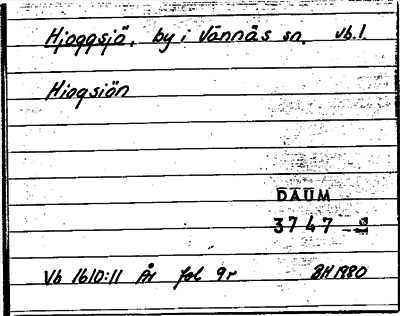 Hjoggsjö, by i Vännäs sn. vb.l.
Hiogsiön
DAUM
3747
Vb 1610:11 År fol 9r BH 1980